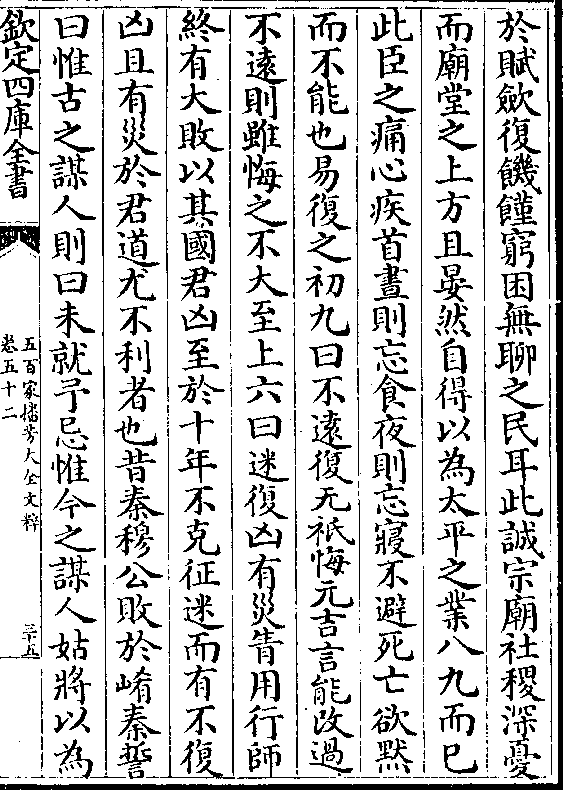 於賦斂復饑饉窮困無聊之民耳此誠宗廟社稷深憂
而廟堂之上方且晏然自得以為太平之業八九而已
此臣之痛心疾首晝則忘食夜則忘寢不避死亡欲黙
而不能也易復之初九曰不遠復无祇悔元吉言能改過
不遠則雖悔之不大至上六曰迷復凶有災眚用行師
終有大敗以其國君凶至於十年不克征迷而有不復
凶且有災於君道尤不利者也昔秦穆公敗於崤秦誓
曰惟古之謀人則曰未就予忌惟今之謀人姑將以為
欽定四庫全書
五百家播芳大全文粹
卷五十二
三十五